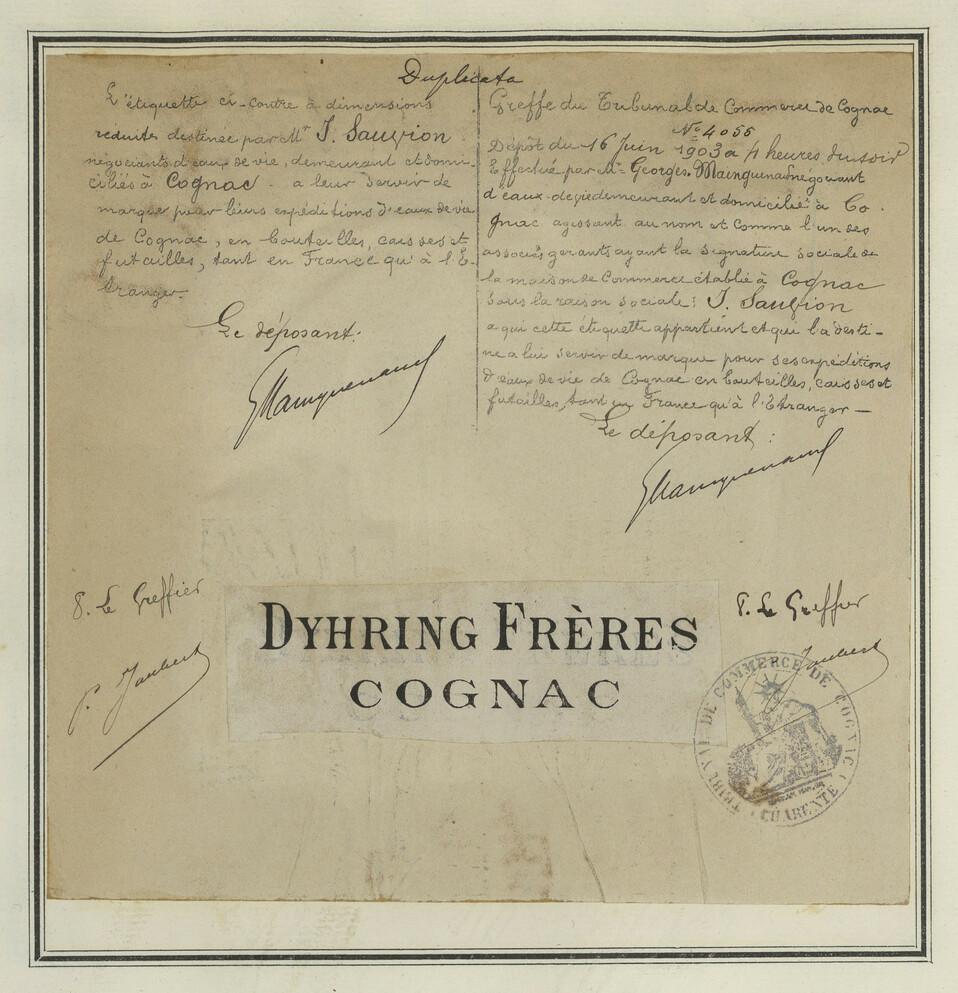 Duplicata
L'étiquette ci-contre à dimensions
réduites destinée par Mr J. Sauvion
négociants d'eaux de vie, demeurant et domi-
ciliés à Cognac. a leur servir de
marque pour leurs expéditions d'eaux de vie
de Cognac, en bouteilles, caisses et
futailles, tant en France qu'à l'E-
tranger.
Le déposant:
GMainguenaud
Greffe du Tribunal de Commerce de Cognac
No 4056
Dépôt du 16 Juin 1903 a 4 heures du soir
Effectué par Mr Georges Mainguenaud négociant
d'eaux-de-vie demeurant et domicilié à Co-
gnac agissant au nom et comme l'un des
associés gérants ayant la signature sociale de
la maison de Commerce établie à Cognac
sous la raison sociale: J. Sauvion
a qui cette étiquette appartient et qui l'a desti-
née a lui servir de marque pour ses expéditions
d'eaux de vie de Cognac en bouteilles, caisses et
futailles, tant en France qu'à l'Etranger —
Le déposant:
GMainguenaud
P. Le Greffier
P. Joubert
P. Le Greffier
Joubert
DYHRING FRÈRES
COGNAC
TRIBUNAL DE COMMERCE DE COGNAC
CHARENTE